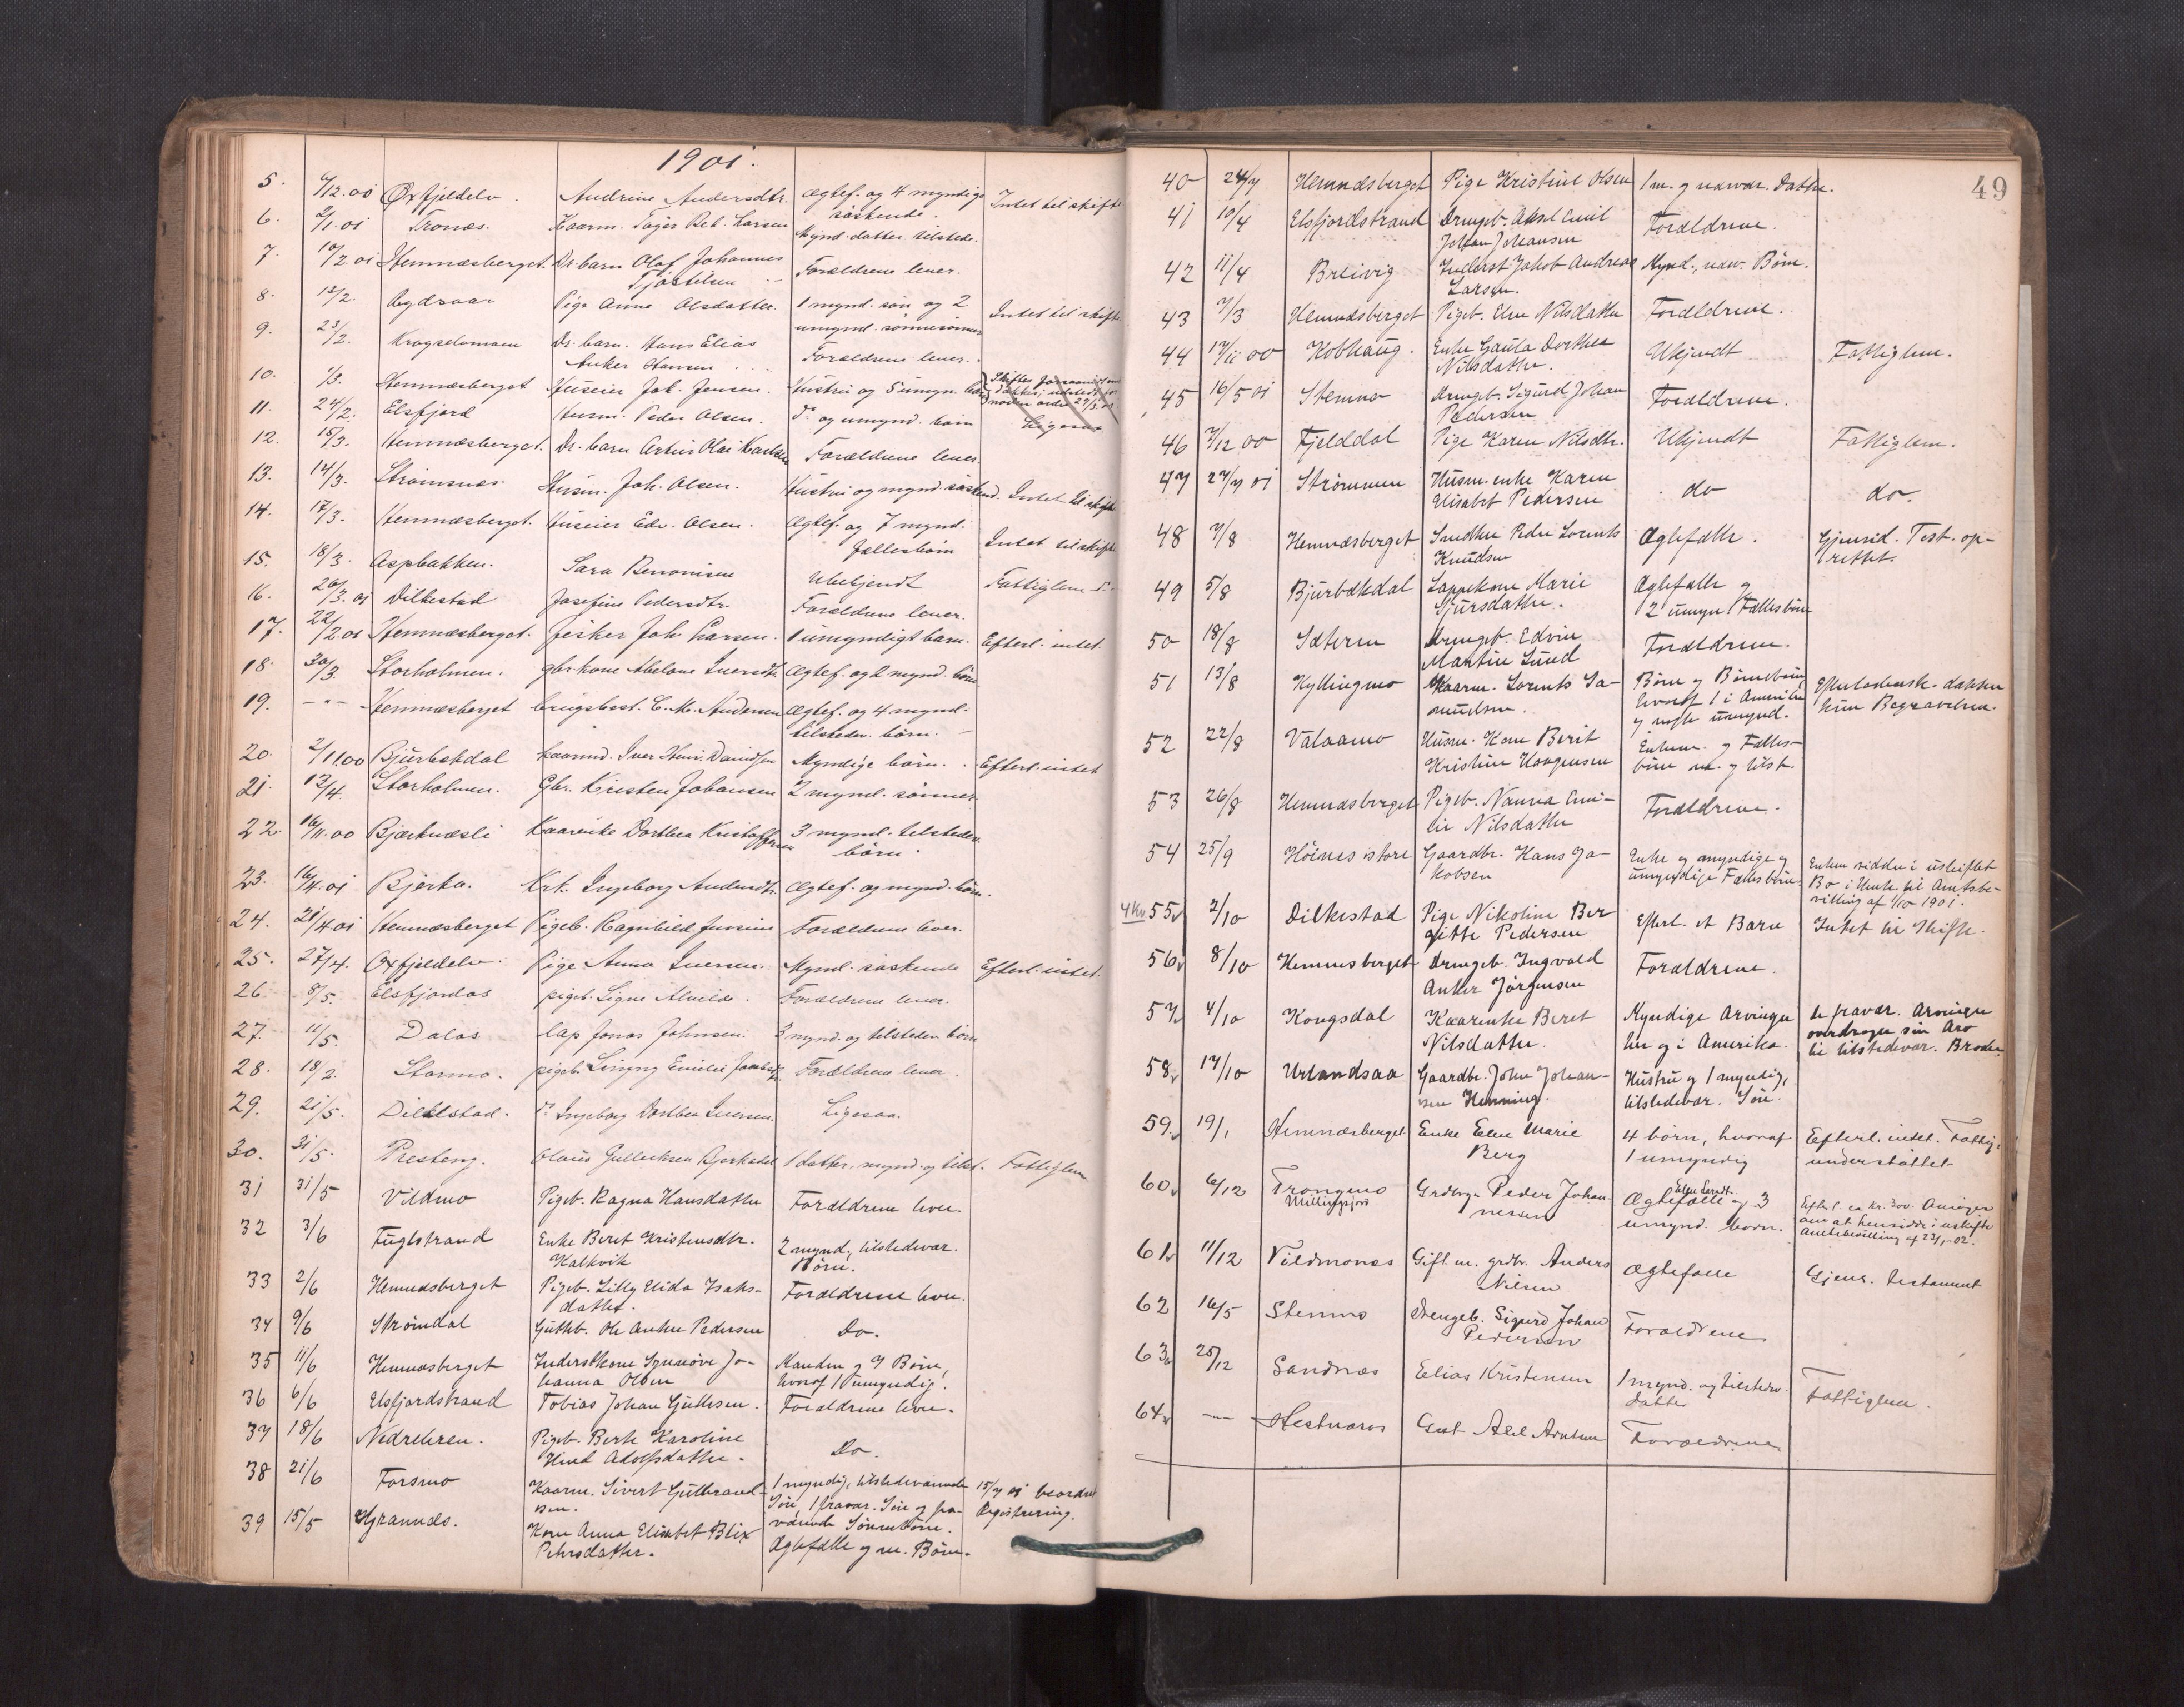 1901.
5. 6/12.00 Oxfjeldelv. Andrine Andersdtr. Ægtef. og 4 myndige søskende. Intet til skifte
6. 2/1.01 Tronæs. Kaarm. Tøger Larsen Mynd. datter tilstede.
7. 10/2.01 Hemnæsberget. Dr. barn Olaf Johannes Forældrene lever.
8. 12/2. Pige Anne Olsdatter. 1 mynd. søn og 2 umynd. sønnesønner Intet til skifte
9. 23/2. Dr. barn. Hans Elias Anker Hansen Forældrene lever.
10. 1/3. Hemnæsberget Huseier Jak. Jensen. Hustru og 5 umyn. børn
11. 24/2. Elsfjord Husm. Peder Olsen. do og umynd. børn Ligesaa
12. 15/3. Hemnæsberget. Dr. barn Artur Olai Karlsen Forældrene lever.
13. 14/3. Strømsnæs. Husm. Joh. Olsen. Hustru og mynd. søskend. Intet til skifte
14. 17/3. Hemnæsberget. Huseier Edv. Olsen. Ægtef. og 7 mynd. fællesbørn Intet til skifte
15. 18/3. Aspbakken. Sara Benonisen Ubekjendt Fattiglem
16. 26/3.01 Dilkestad Josefine Pedersdtr. Forældrene lever.
17. 22/2.01 Hemnæsberget. fisker Joh. Larsen. 1 umyndigt barn. Efterl. intet.
18. 30/3. Storholmen. gbr. kone Abelone Iversdtr. Ægtef. og 2 mynd. børn
19. -"- Hemnæsberget brugsbest. C. M. Andersen Ægtef. og 4 mynd. tilstedev. børn.
20. 2/11.00 Bjurbækdal kaarmd. Iver Henr. Davidsen Myndige børn. Efterl. intet
21. 13/4. Storholmen. Gbr. Kristen Johansen 2 mynd. sønner.
22. 16/11.00 Bjerknæsli Kaarenke Dorthea Kristoffersen 3 mynd. tilstedev. børn.
23. 16/4.01 Bjerka. Krt. Ingeborg Andersdtr. Ægtef. og mynd. børn.
24. 21/4.01 Hemnæsberget Pigeb. Ragnhild Jensine Forældrene lever.
25. 27/4. Oxfjeldelv. Pige Anna Iversen. Mynd. søskende Efterl. intet.
26. 8/5. Elsfjordos pigeb. Signe Alvilde. Forældrene lever.
27. 11/5. Dalos lap Jonas Johnsen. 3 mynd. og tilstedev. børn
28. 18/2. Stormo. pigeb. Emilie Forældrene lever.
29. 21/5. Dilkestad. do Ingeborg Dorthea Iversen. Ligesaa.
30. 31/5. Presteng. Olaus Gulliksen Bjerkadal 1 datter, mynd. og tilst. Fattiglem
31 31/5 Vildmo Pigeb. Ragna Hansdatter Forældrene lever.
32 3/6 Fuglstrand Enke Beret Kristensdtr. Kalkvik 2 mynd., tilstedevær. Børn.
33 2/6 Hemnæsberget Pigeb. Lilly Elida Isaksdatter. Forældrene lever.
34 9/6 Strømdal Gutteb. Ole Anker Pedersen Do.
35 11/6 Hemnæsberget Inderstkone Synnøve Johanna Olsen Manden og 7 Børn, hvoraf 1 umyndig.
36 6/6 Elsfjordstrand Tobias Johan Gullesen. Forældrene lever.
37 18/6 Nedreleren. Pigeb. Berte Karoline Hind Adolfsdatter. Do.
38 21/6 Forsmo Kaarm. Sivert Gulbrandsen. 1 myndig, tilstedeværende Søn, 1 fravær. Søn og fraværende Sønnebørn. 15/7 01 beordret Registrering.
39 15/5 Grannæs. Kone Anna Elisabet Blix Petersdatter. Ægtefælle og m. Børn.
49
40 24/7 Hemnæsberget Pige Kristine Olsen 1 m. og nærvær. Datter.
41 10/4 Elsfjordstrand Drengeb. Aksel Emil Johan Johansen Forældrene.
42 11/4 Breivig Inderst Jakob Andreas Larsen. Mynd., nærv. Børn.
43 7/3 Hemnæsberget Pigeb. Elen Nilsdatter Forældrene.
44 17/11 00 Kobhaug. Enke Gaula Dorthea Nilsdatter. Ukjendt Fattiglem.
45 16/5 01 Stenmo Drengeb. Sigurd Johan Pedersen Forældrene.
46 7/12 00 Fjelddal Pige Karen Nilsdtr. Ukjendt Fattiglem.
47 27/7 01 Strømmen Husm. enke Karen Elisabet Pedersen do do.
48 7/8 Hemnæsberget Snedker Peder Lorents Knudsen Ægtefælle. Gjensid. Test. oprettet.
49 5/8 Bjurbækdal Lappekone Marie Sjursdatter. Ægtefælle og 2 umyn. Fællesbørn
50 18/8 Sæteren Drengeb. Edvin Martin Lund Forældrene.
51 13/8 Kyllingmo Kaarm. Lorents Samuelsen. Børn og Børnebørn, hvoraf 1 i Amerika og nogle umynd. Efterladensk. dækker kun Begravelsen.
52 22/8 Valaamo Husm. Kone Berit Kristine Haagensen Enkem. og Fællesbørn m. og tilst.
53 26/8 Hemnæsberget Pigeb. Nanna Emilie Nilsdatter Forældrene.
54 25/9 Høines store Gaardbr. Hans Jakobsen Enke og myndige og umyndige Fællesbørn. Enken sidder i uskiftet Bo i Henh. til Amtsbevilling af 1/10 1901.
4 Kv. 55 2/10 Dilkestad Pige Nikoline Bergitte Pedersen Efterl. et Barn Intet til Skifte.
56 8/10 Hemnesberget Drengeb. Ingvald Anker Jørgensen Forældrene.
57 4/10 Kongsdal Kaarenke Beret Nilsdatter. Myndige Arvinger her og i Amerika. de fravær. Arvinger overdrager sin Arv til tilstedevær. Broder.
58 17/10 Urlandsaa Gaardbr. John Johansen Henning. Hustru og 1 myndig, tilstedevær. Søn.
59. 19/1 Hemnæsberget Enke Elen Marie Berg 4 børn, hvoraf 1 umyndig Efterl. intet. Fattigunderstøttet
60 6/12 Trongmo Millingsjord Grdbrgr. Peder Johannessen Ægtefælle og 3 umynd. børn. Efterl. ca kr. 300. om at hensidde i uskifte Amtsbevilling af 23/1-02.
61 11/12 Vildmones Gift m. grdbr. Anders Nilsen Ægtefælle Gjens. testament
62 16/5 Stenmo Drengeb. Sigurd Johan Pedersen Forældrene
63 25/12 Sandnæs Elias Kristensen 1 mynd. og tilstedev. datter Fattiglem.
64 -"- Hestnæsos Gut Axel Arntsen Forældrene